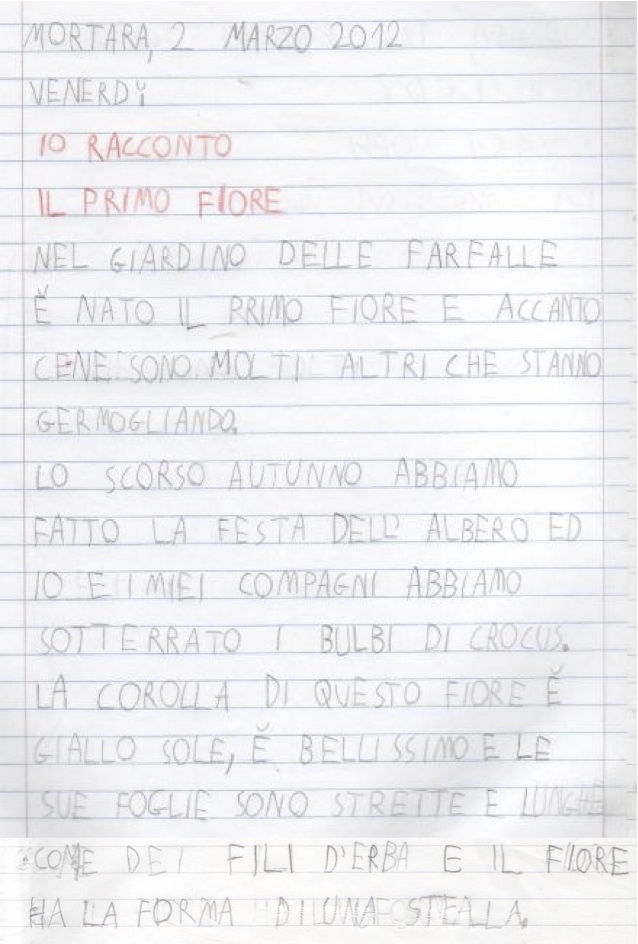 MORTARA, 2 MARZO 2012
VENERDÌ
IO RACCONTO
IL PRIMO FIORE
NEL GIARDINO DELLE FARFALLE
È NATO IL PRIMO FIORE E ACCANTO
CENE SONO MOLTI ALTRI CHE STANNO
GERMOGLIANDO.
LO SCORSO AUTUNNO ABBIAMO
FATTO LA FESTA DELL' ALBERO ED
IO E I MIEI COMPAGNI ABBIAMO
SOTTERRATO I BULBI DI CROCUS.
LA COROLLA DI QUESTO FIORE È
GIALLO SOLE, È BELLISSIMO E LE
SUE FOGLIE SONO STRETTE E LUNGHE
COME DEI FILI D'ERBA E IL FIORE
HA LA FORMA DI UNA STELLA.